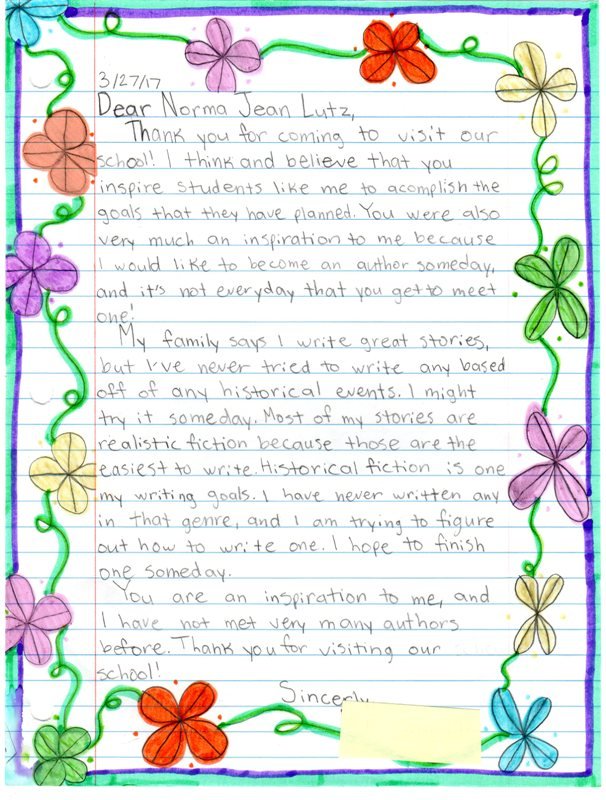 3/27/17
Dear Norma Jean Lutz,
Thank you for coming to visit our
school! I think and believe that you
inspire students like me to acomplish the
goals that they have planned. You were also
very much an inspiration to me because
I would like to become an author someday,
and it's not everyday that you get to meet
one!
My family says I write great stories,
but I've never tried to write any based
off of any historical events. I might
try it someday. Most of my stories are
realistic fiction because those are the
easiest to write. Historical fiction is one
my writing goals. I have never written any
in that genre, and I am trying to figure
out how to write one. I hope to finish
one someday.
You are an inspiration to me, and
I have not met very many authors
before. Thank you for visiting our
school!
Sincerly